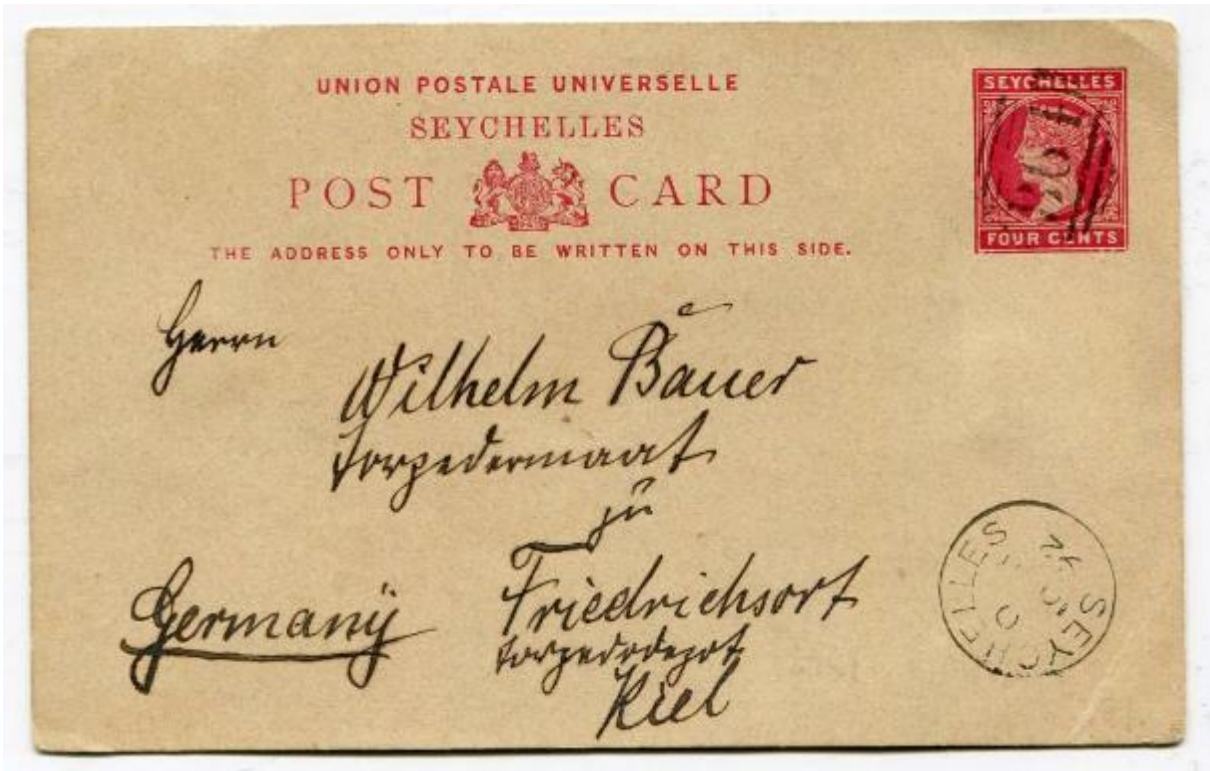 UNION POSTALE UNIVERSELLE
SEYCHELLES
POST CARD
THE ADDRESS ONLY TO BE WRITTEN ON THIS SIDE.
SEYCHELLES
FOUR CENTS
B64
Herrn
Wilhelm Bauer
Torpedermaat
zu
Friedrichsort
Germany
Torpedodepot
Kiel
SEYCHELLES